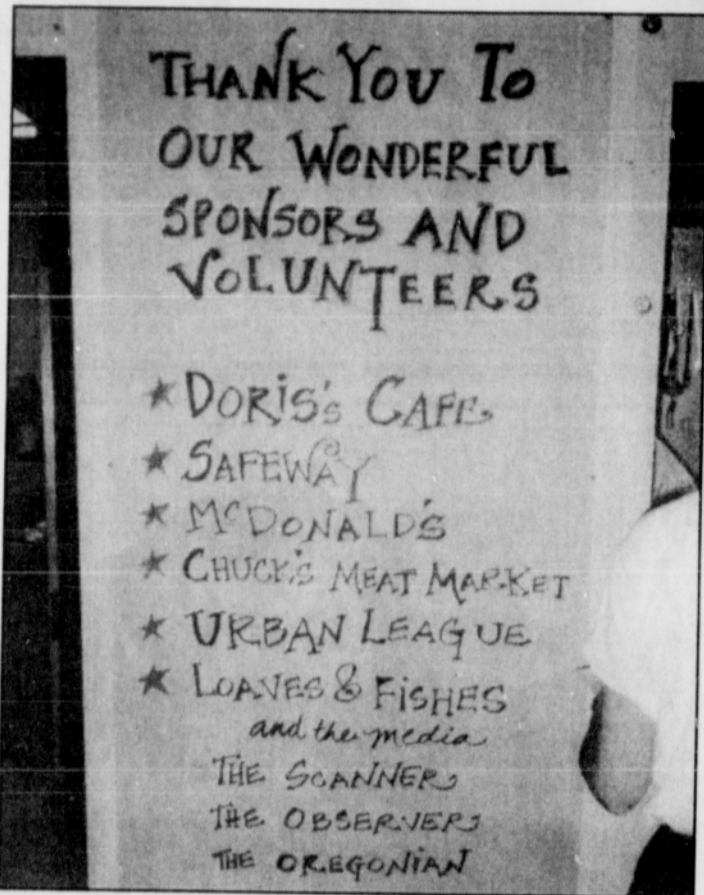 THANK YOU TO
OUR WONDERFUL
SPONSORS AND
VOLUNTEERS
★ DORIS's CAFE
★ SAFEWAY
★ McDONALD'S
★ CHUCK'S MEAT MARKET
★ URBAN LEAGUE
★ LOAVES & FISHES
and the media
THE SCANNER
THE OBSERVER
THE OREGONIAN